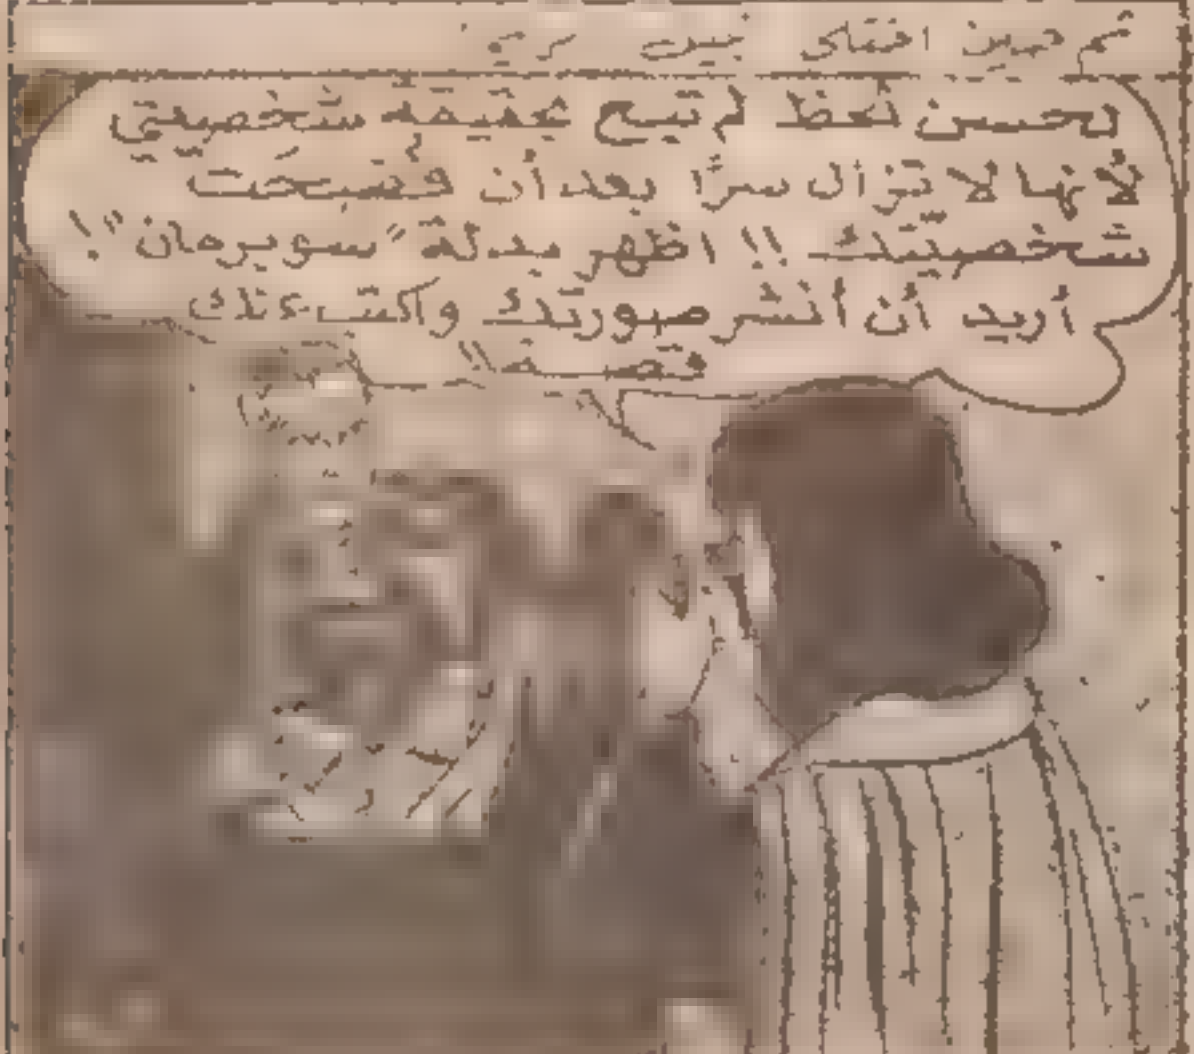 ثم حين افتكى نبيت
لحسن لحظ لم تبيح عقيقة شخصيتي
لأنها لا تزال سرًا بعد أن فضحت
شخصيتك !! اظهر ببدلة "سوبرمان" !
أريد أن أنشر صورتك وأكتب عنك
قصة !!